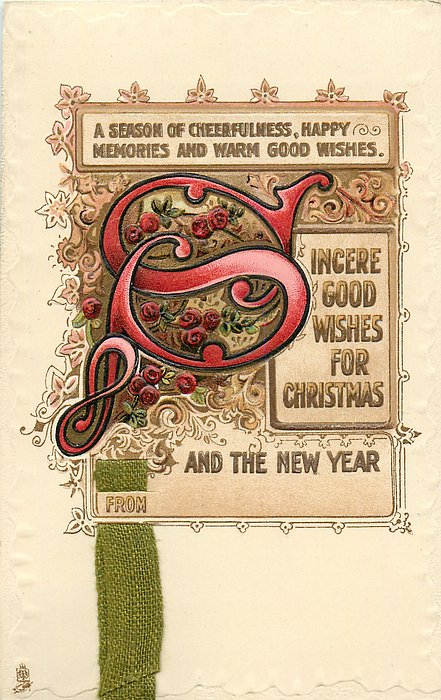 A SEASON OF CHEERFULNESS, HAPPY
MEMORIES AND WARM GOOD WISHES.
SINCERE
GOOD
WISHES
FOR
CHRISTMAS
AND THE NEW YEAR
FROM